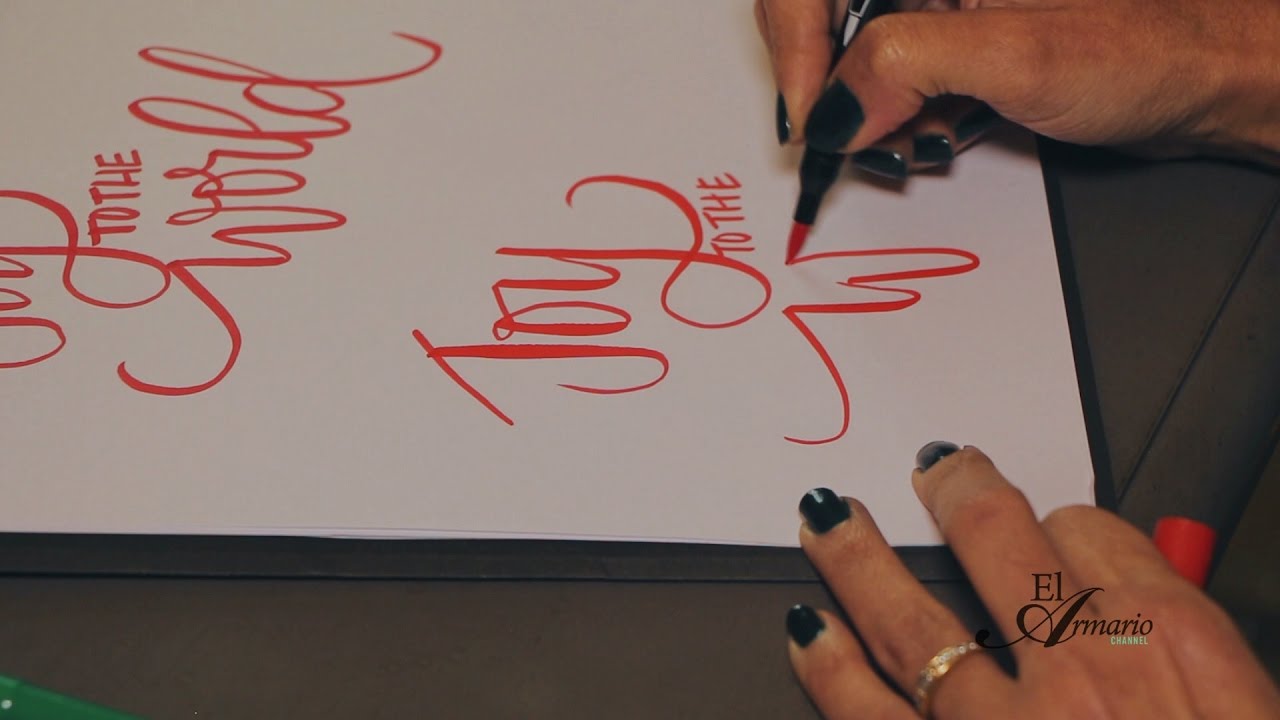 TO THE
world
Joy
TO THE
w
El
Armario
CHANNEL